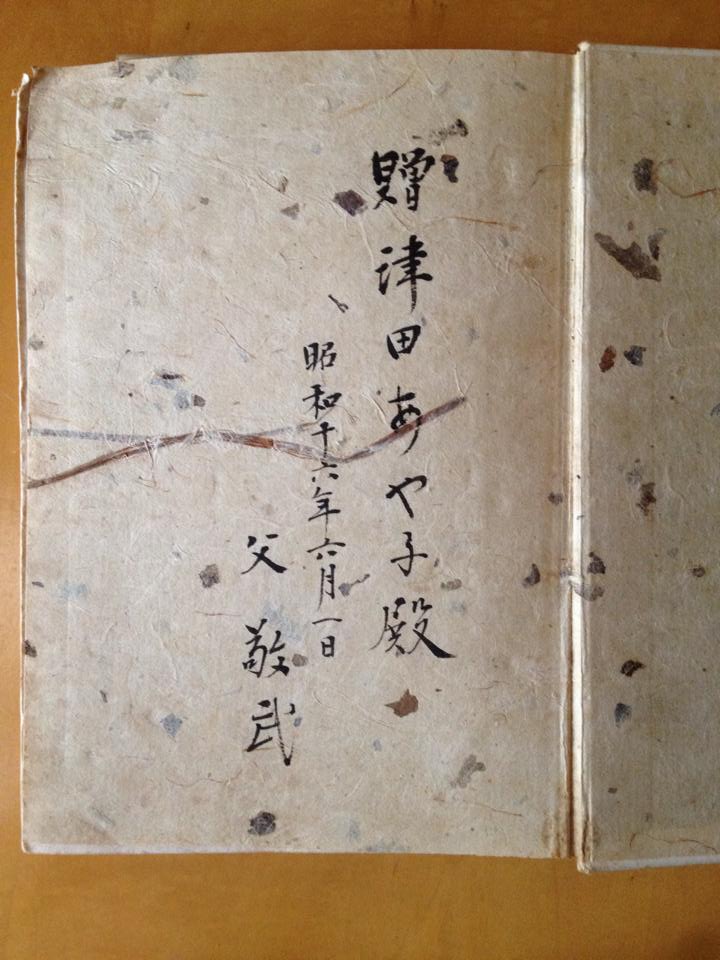 贈 津田あや子殿
昭和十六年六月一日
父 敬武